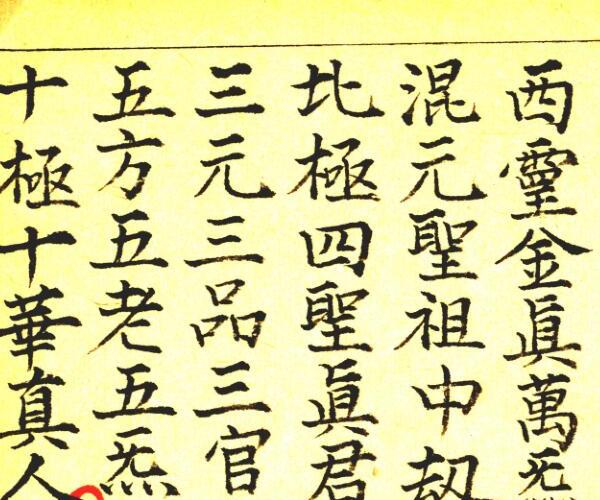 西霊金眞萬炁
混元聖祖中刼
北極四聖眞君
三元三品三官
五方五老五炁
十極十華真人